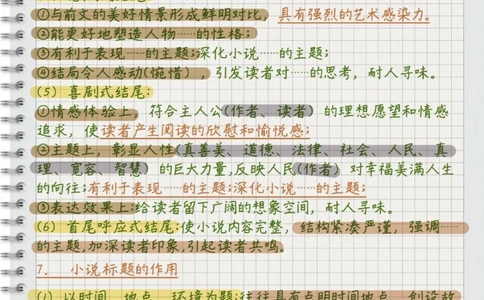 ①与前文的美好情景形成鲜明对比，具有强烈的艺术感染力。
②能更好地塑造人物……的性格；
③有利于表现……的主题；深化小说……的主题；
④结局令人感动(惋惜)，引发读者对……的思考，耐人寻味。
(5) 喜剧式结尾：
①情感体验上，符合主人公(作者、读者)的理想愿望和情感
追求，使读者产生阅读的欣慰和愉悦感；
②主题上，彰显人性(真善美、道德、法律、社会、人民、真
理、宽容、智慧)的巨大力量,反映人民(作者)对幸福美满人生
的向往；有利于表现……的主题；深化小说……的主题；
③表达效果上：给读者留下广阔的想象空间，耐人寻味。
(6) 首尾呼应式结尾：使小说内容完整，结构紧凑严谨，强调……
的主题,加深读者印象,引起读者共鸣。
7. 小说标题的作用
(1) 以时间、地点、环境为题：往往具有点明时间地点、创设故